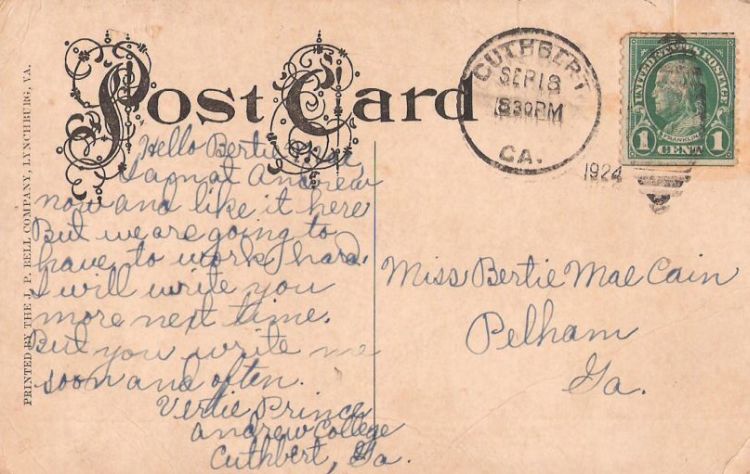 Post Card
CUTHBERT
SEP 18
830PM
GA.
1924
UNITED STATES POSTAGE
FRANKLIN
1 CENT 1
PRINTED BY THE J. P. BELL COMPANY, LYNCHBURG, VA.
Hello Bertie Mae,
I am at Andrew
now and like it here
But we are going to
have to work hard.
I will write you
more next time.
But you write me
soon and often.
Vertie Prince
Andrew College
Cuthbert, Ga.
Miss Bertie Mae Cain
Pelham
Ga.